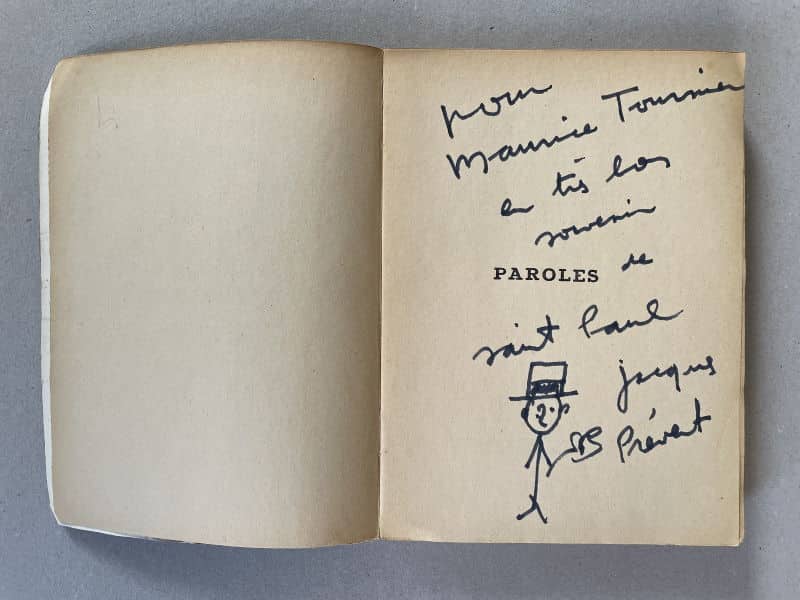 pour
Maurice Tournier
en très bon
souvenir
de
PAROLES
saint Paul
jacques
Prévert